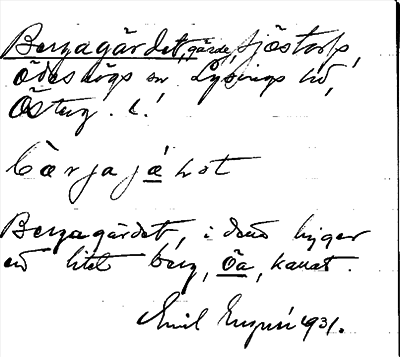 Bergagärdet, gärde, Sjöstorp,
Ödeshögs sn Lysings hd,
Österg. l.
bærjajæ̀ḷot
Bergagärdet, i detta ligger
ett litet berg, Öa, kallat.
Emil 1931.